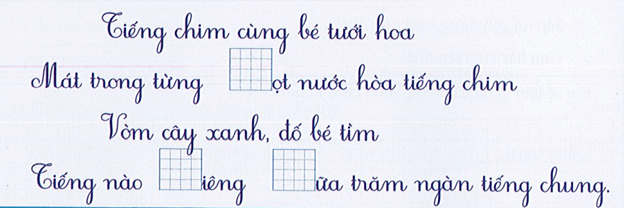 Tiếng chim cùng bé tưới hoa
Mát trong từng ọt nước hòa tiếng chim
Vòm cây xanh, đố bé tìm
Tiếng nào iêng ữa trăm ngàn tiếng chung.